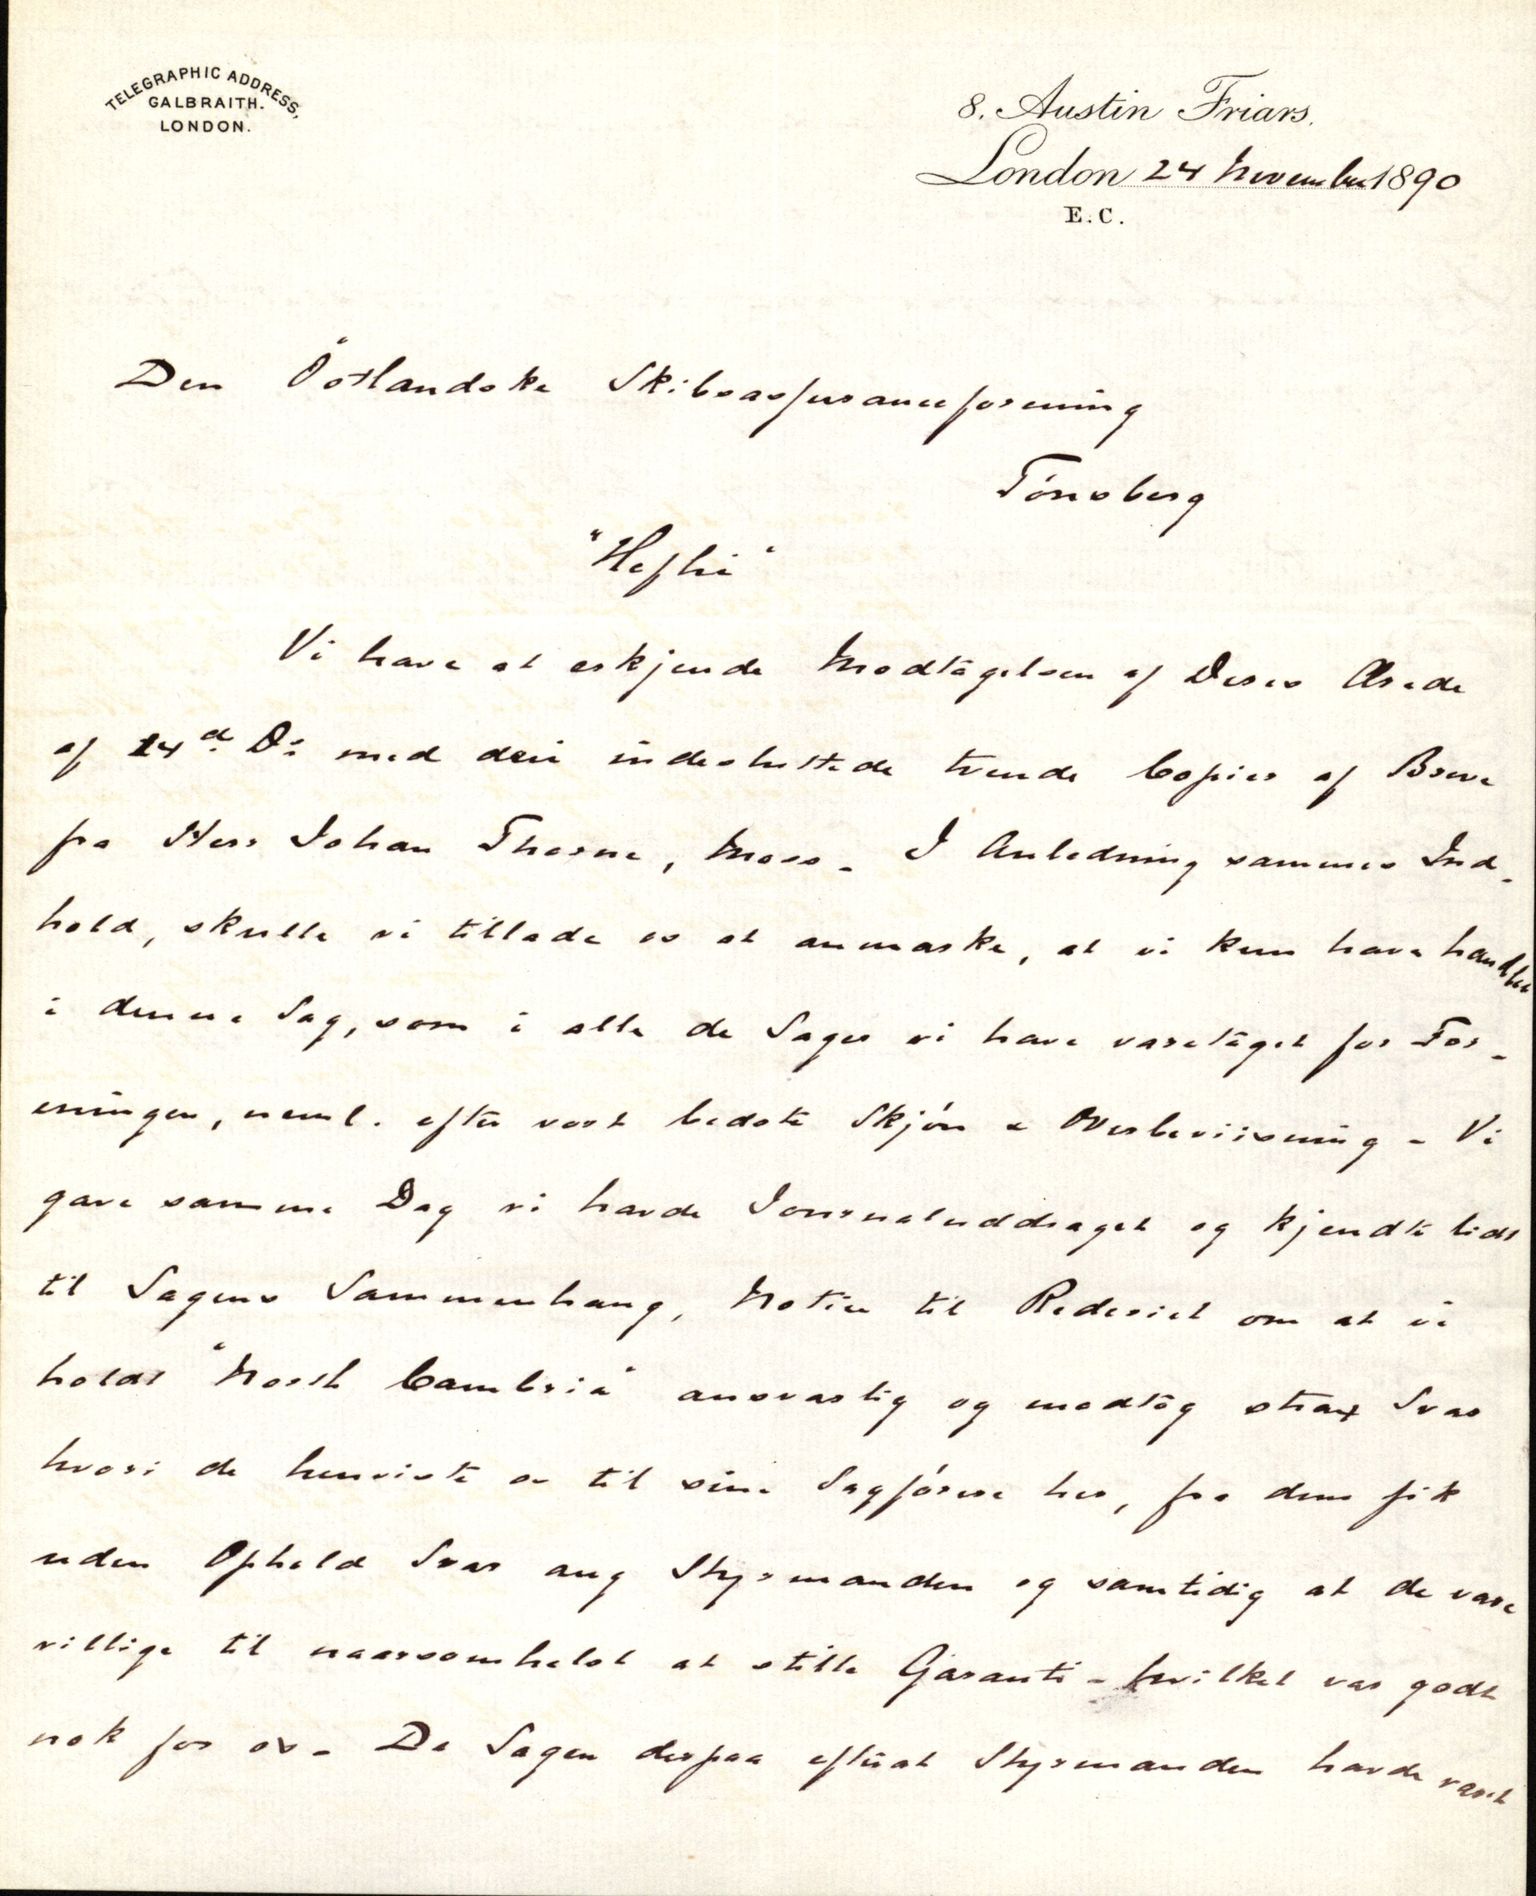 TELEGRAPHIC ADDRESS,
GALBRAITH.
LONDON.
8, Austin Friars,
London 24 November 1890
E.C.
Den Östlandske Skibsassuranceforening
Tönsberg
"Hefhi"
Vi have at erkjende Modtagelsen af Deres Ærede
af 14d. Ds. med deri indesluttede tvende Copier af Breve
fra Herr Johan Thorne, Moss. I Anledning sammes Ind-
hold, skulle vi tillade os at anmærke, at vi kun have handlet
i denne Sag, som i alle de Sager vi have varetaget for For-
eningen, neml. efter vort bedste Skjön & Overbeviisning - Vi
gave samme Dag vi havde Journaluddraget og kjendte lidt
til Sagens Sammenhang, Notice til Rederiet om at vi
holdt "North Cambria" ansvarlig og modtog strax Svar
hvori de henviste os til sine Sagförere her, fra dem fik
uden Ophold Svar ang Styrmanden og samtidig at de vare
villige til naarsomhelst at stille Garanti - hvilket var godt
nok for os - Da Sagen derpaa efterat Styrmanden havde været